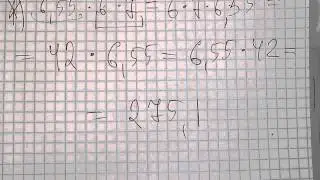 6,55 · 6 · 7 = 6 · 7 · 6,55 =
= 42 · 6,55 = 6,55 · 42 =
= 275,1